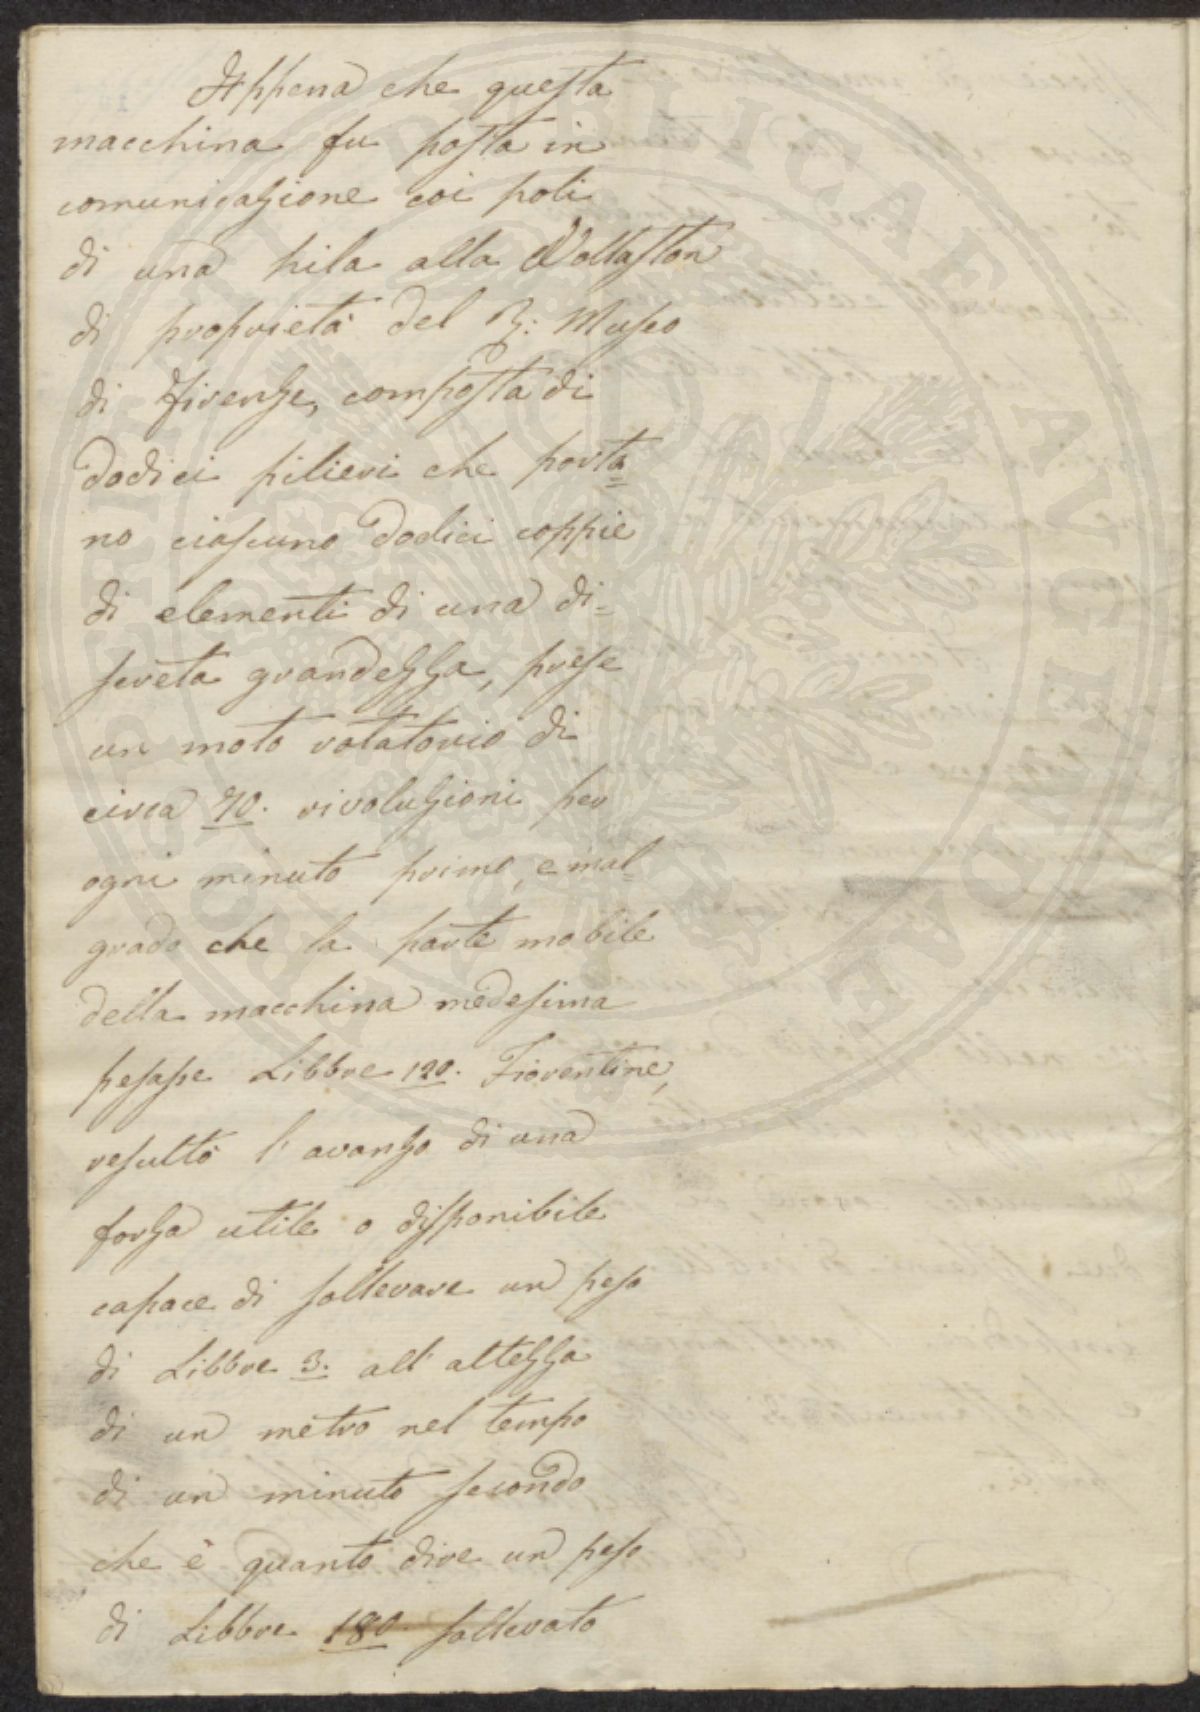 Appena che questa
macchina fu posta in
comunicazione coi poli
di una pila alla Wollaston
di proprietà del R: Museo
di Firenze, composta di
dodici pilieri che porta=
no ciascuno dodici coppie
di elementi di una di=
screta grandezza, prese
un moto rotatorio di
circa 70. rivoluzioni per
ogni minuto primo, e mal=
grado che la parte mobile
della macchina medesima
pesasse Libbre 120. Fiorentine,
resultò l'avanzo di una
forza utile o disponibile
capace di sollevare un peso
di Libbre 3. all'altezza
di un metro nel tempo
di un minuto secondo
che è quanto dire un peso
di Libbre 180. sollevato
PUBLICAE AUGENDAE